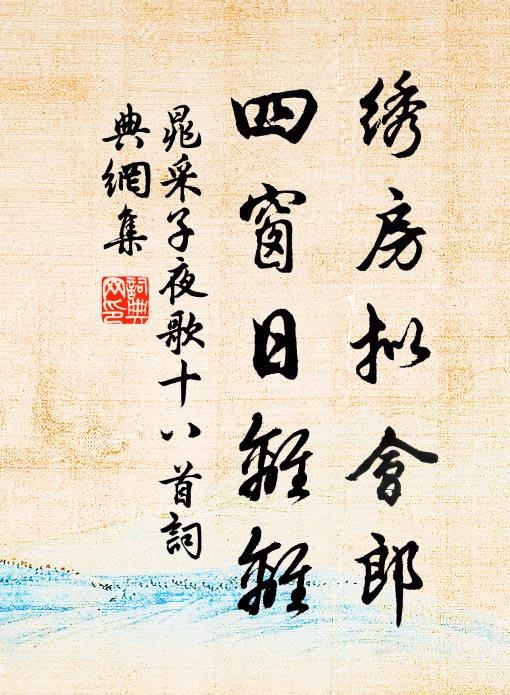 绣房拟會郎
四窗日離離
晁采子夜歌十八首詞
典網集
詞典
网印